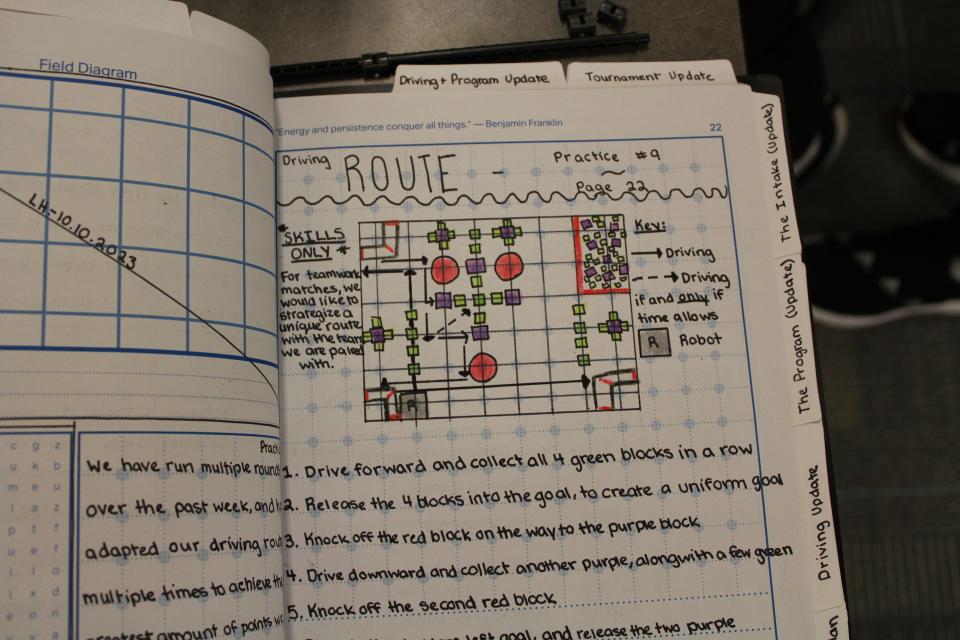 Field Diagram
LH-10.10.2023
c g z
u k b
m e u
l a z
p t f
u e f
We have run multiple
over the past week, and
adapted our driving
multiple times to achieve
amount of points
Driving + Program Update
Tournament Update
"Energy and persistence conquer all things." — Benjamin Franklin
22
Driving ROUTE - Practice #9
Page 22
*SKILLS
ONLY *
For teamwork
matches, we
would like to
strategize a
unique route
with the team
we are paired
with.
R
Key:
Driving
Driving
if and only if
time allows
R Robot
1. Drive forward and collect all 4 green blocks in a row
2. Release the 4 blocks into the goal, to create a uniform goal
3. Knock off the red block on the way to the purple block
4. Drive downward and collect another purple, alongwith a few green
5. Knock off the second red block
left goal, and release the two purple
The Intake (Update)
The Program (Update)
Driving Update